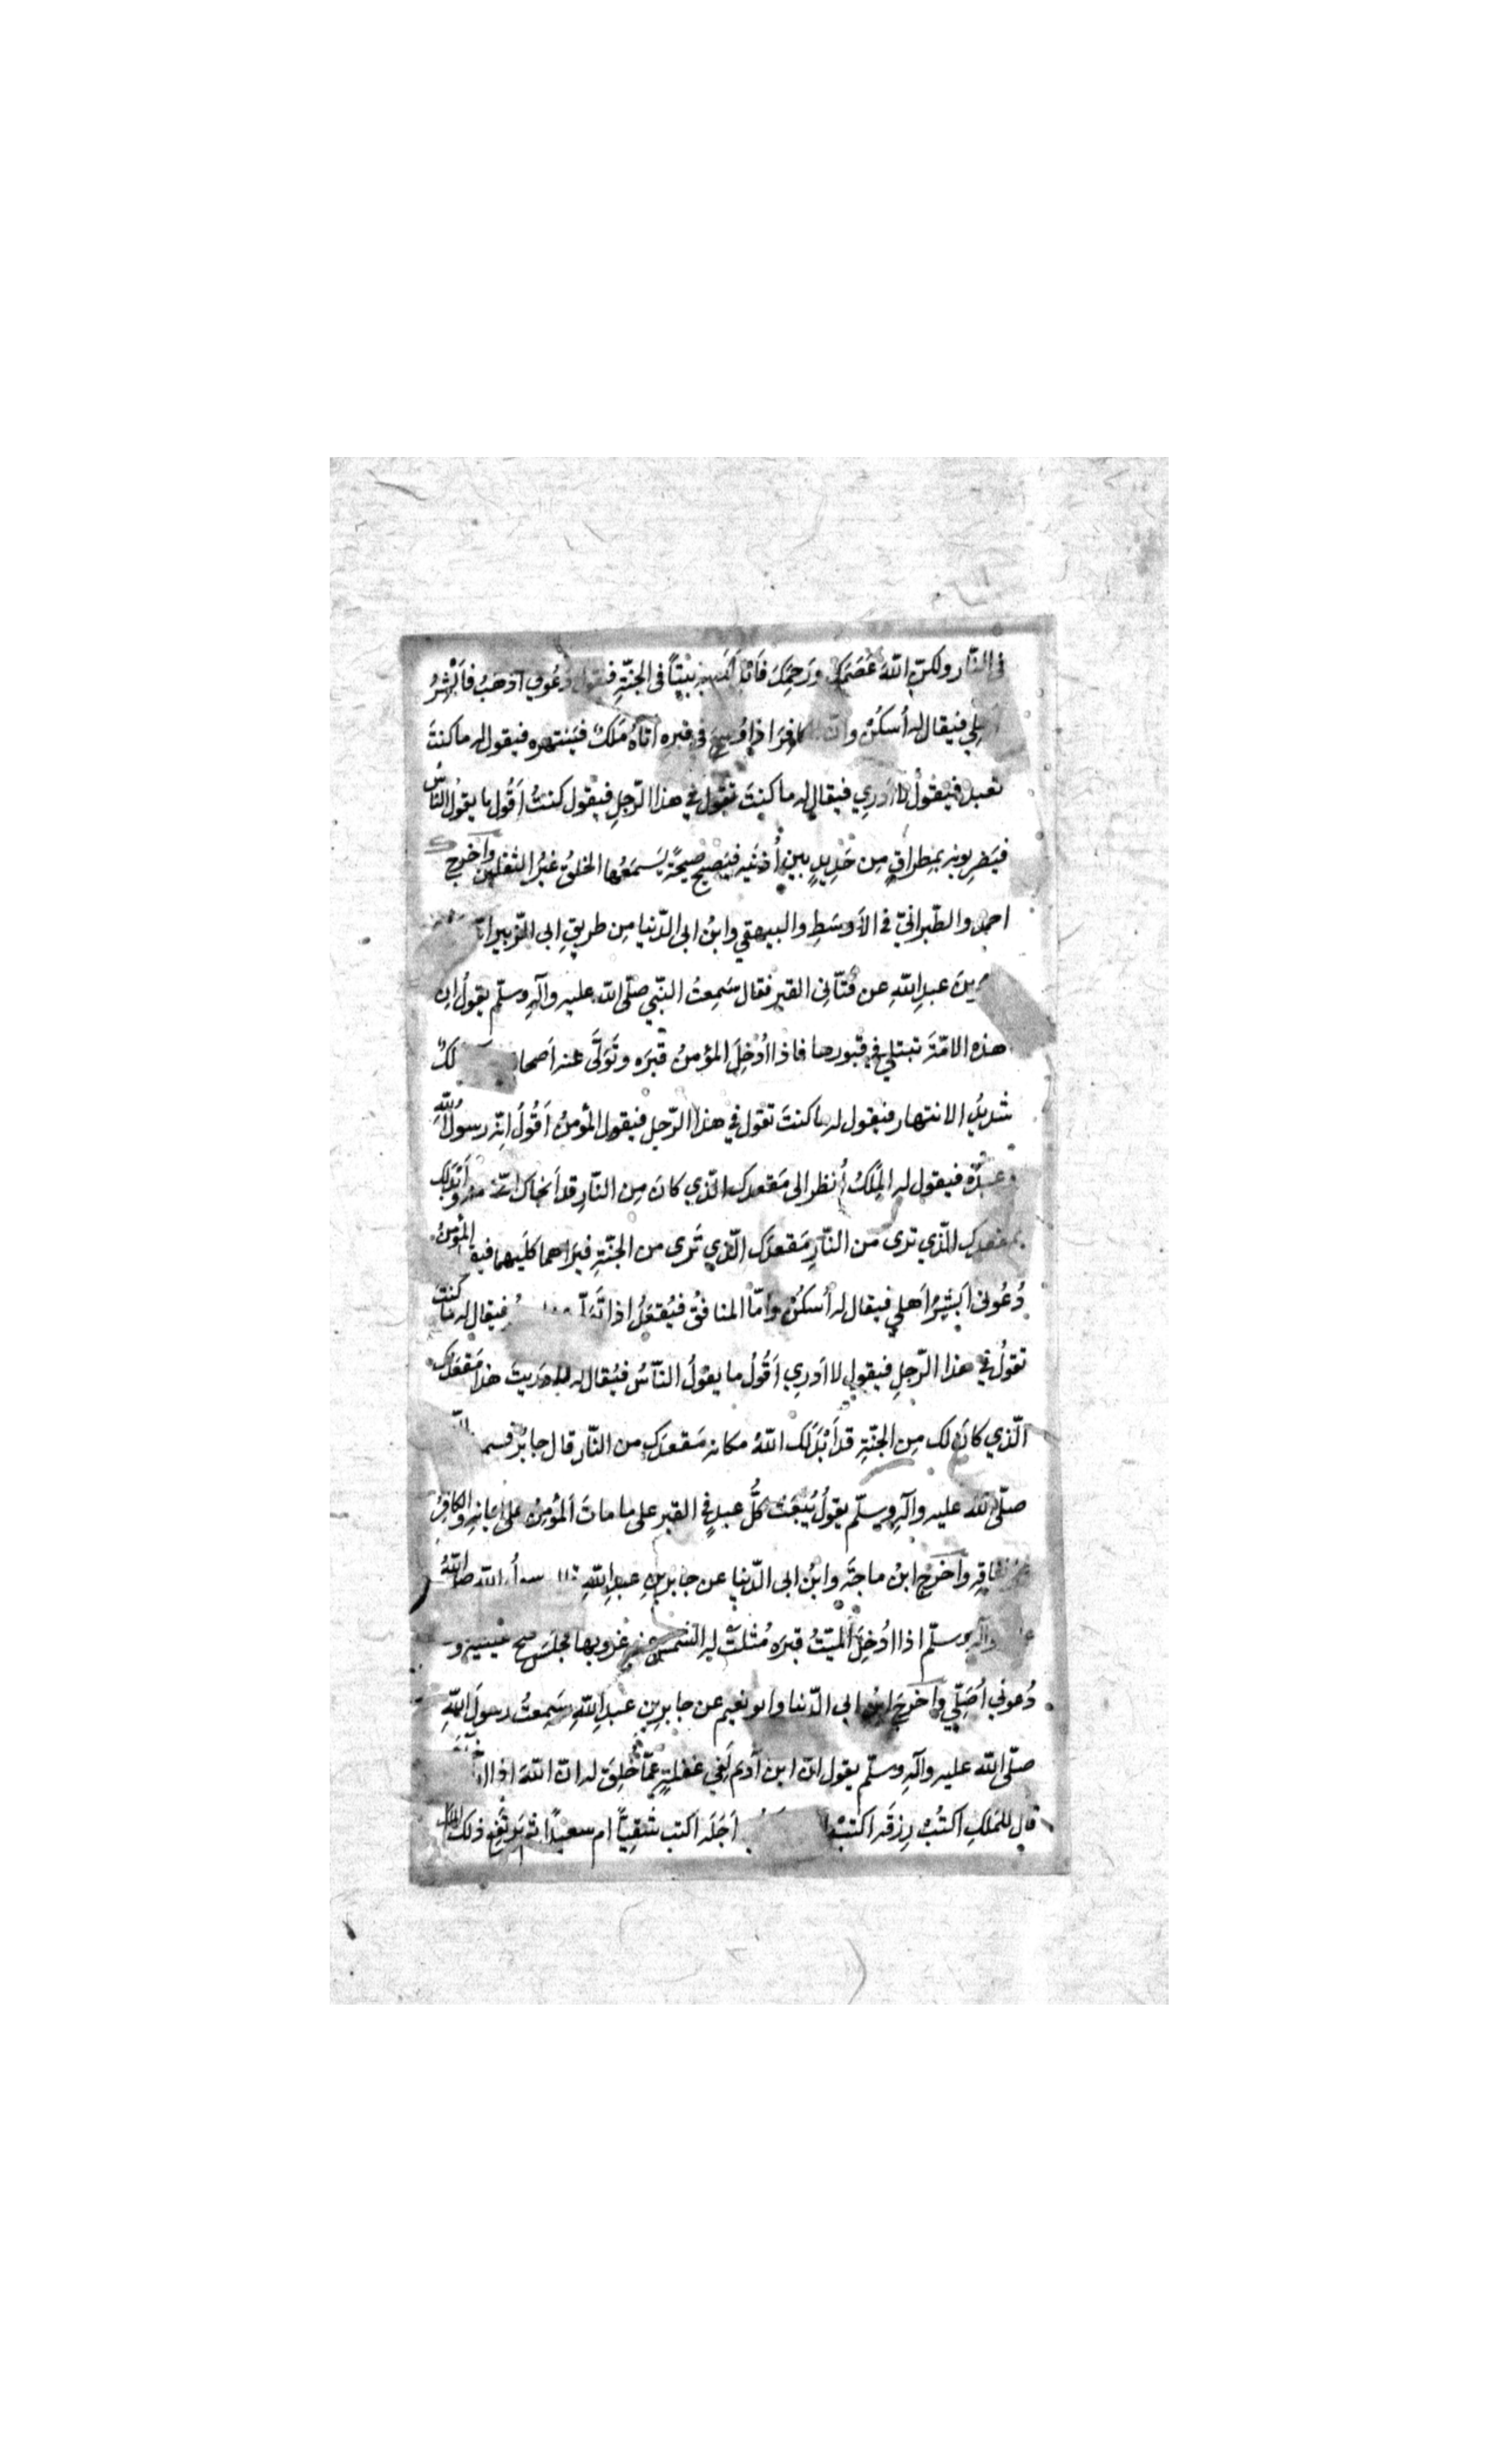 فى النّار ولكنّ اللّهَ عَصَمَكَ ورَحِمَكَ فَاَبْدَلَكَ بِه بَيْتاً فى الجنّةِ فيقول دَعُونِي اَذْهَبُ فَاُبَشِّرُ
اَهلِي فيقال له اُسكُنْ وانّ الكافِرَ اذا وُضِعَ في قبرِه اتاهُ مَلَكٌ فيَنتهره فيقول له ما كنتَ
تعبد فيقولُ لا اَدرِي فيقال له ما كنتَ تقول في هذا الرّجلِ فيقول كنتُ اَقُول ما يقول النّاسُ
فيَضرِبونه بمِطراقٍ مِن حَدِيدٍ بين اُذنَيه فيَصيح صيحةً يَسمَعُها الخلقُ غيرُ الثّقلين واَخرج
احمد والطّبرانيّ في الاَوسَطِ والبيهقي وابنُ ابى الدّنيا مِن طريقِ ابى الزّبير انّه
بن عبدِ اللّهِ عن فَتّانِى القبرِ فقال سَمِعتُ النّبي صلّى اللّه عليه وآلهِ وسلّم يقولُ ان
هذه الامّةَ تبتلى في قبورها فاذا اُدْخِلَ المؤمنُ قبرَه وتَوَلّى عنه اَصحابه مَلَكٌ
شديدُ الانتهار فيقول له ما كنتَ تقول في هذا الرّجلِ فيقول المؤمنُ اَقُولُ انّه رسولُ اللّهِ
وعبدُه فيقول له المَلَكُ اُنظر الى مَقعدِك الّذي كانَ مِن النّارِ قد اَنجاك اللّه منه واَبْدَلك
بمقعدِك الّذي ترى من النّارِ مَقعدَك الّذي تَرى من الجنّةِ فيَراهما كلَيهما فيقول المؤمنُ
دَعُونى اُبَشِّرُ اَهلي فيقال له اُسكُن وامّا المنافقُ فيُقعَدُ اذا تَوَلّى فيقال له ما كنتَ
تقولُ في هذا الرّجلِ فيقول لا اَدرِي اَقُولُ ما يقولُ النّاسُ فيُقال له لا دَرَيتَ هذا مَقعَدُك
الّذي كانَ لك مِن الجنّةِ قد اَبْدَلَك اللّهُ مكانه مَقعدَك من النّار قال جابرٌ فسمعت
صلّى اللّه عليه وآلهِ وسلّم يقولُ يُبعَثُ كلُّ عبدٍ في القبرِ على ما ماتَ المؤمِنُ على ايمانِه والكافِرُ
على نفاقِه واَخرَجَ ابنُ ماجةَ وابنُ ابى الدّنيا عن جابرِ بنِ عبدِ اللّهِ قال رسولُ اللّه صلّى اللّهُ
عليه وآلهِ وسلّم اذا اُدْخِلَ المَيّتُ قبرَه مُثلَتْ له الشّمس عند غروبِها فيَجلِسُ يمسح عينيه و
دَعونِي اُصَلّي واَخرَجَ ابنُ ابى الدّنيا وابو نعيم عن جابرِ بنِ عبدِ اللّهِ سَمِعتُ رسولَ اللّهِ
صلّى اللّه عليه وآلهِ وسلّم يقول انّ ابن آدم لَفِي غفلةٍ عَمّا خُلِقَ له انّ اللّهَ اذا
قال للمَلَكِ اكتُبْ رِزقَه اكتُبْ اَجَلَه اكتب شَقِيّاً ام سعيداً ثم يَرتَفِع ذلك المَلَك